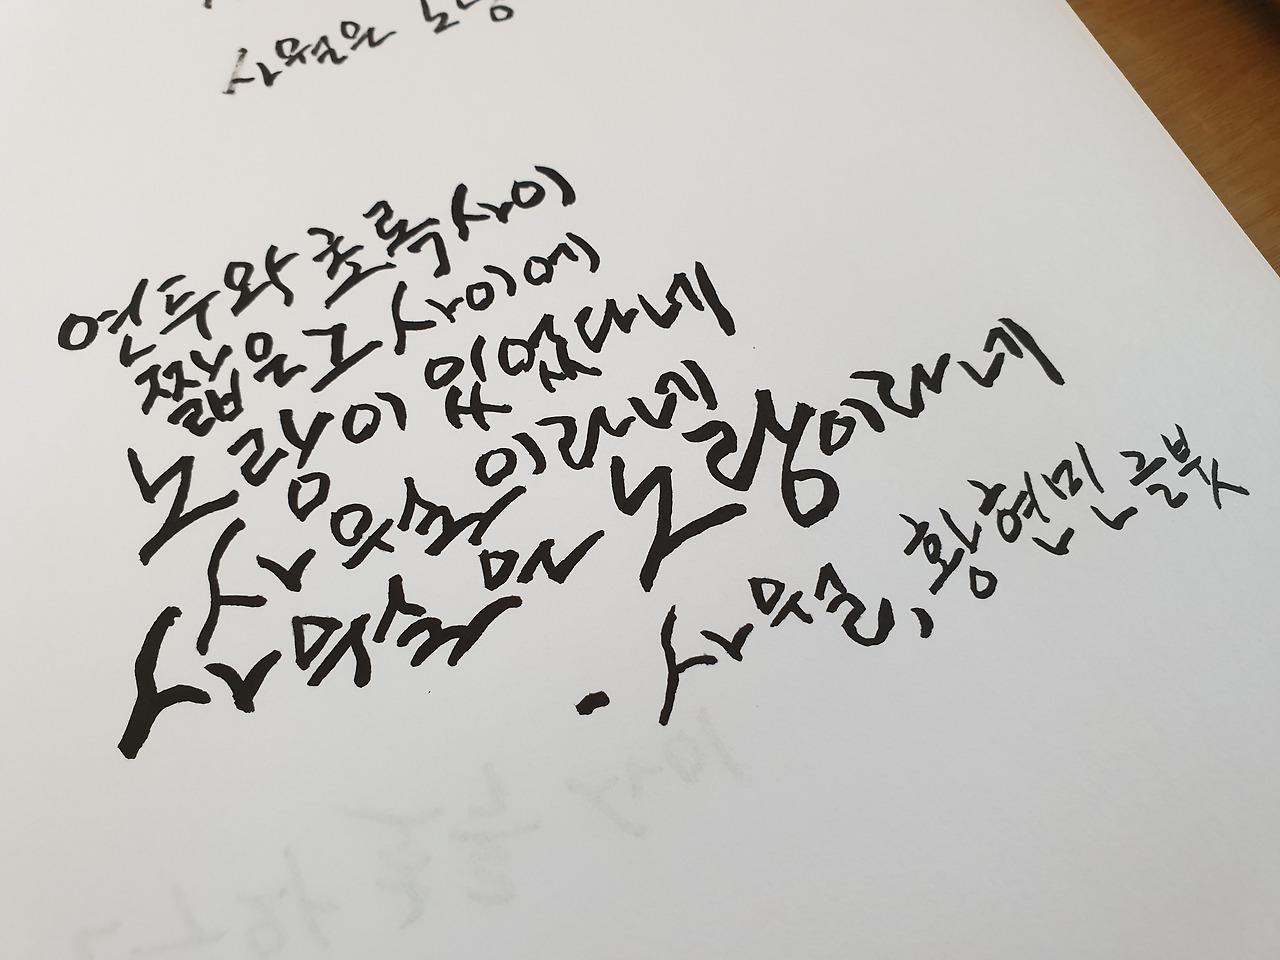 사월은 노랑
연두와 초록 사이
짧은 그 사이에
노랑이 있었다네
사월이라네
사월은 노랑이라네
- 사월, 황현민 글붓